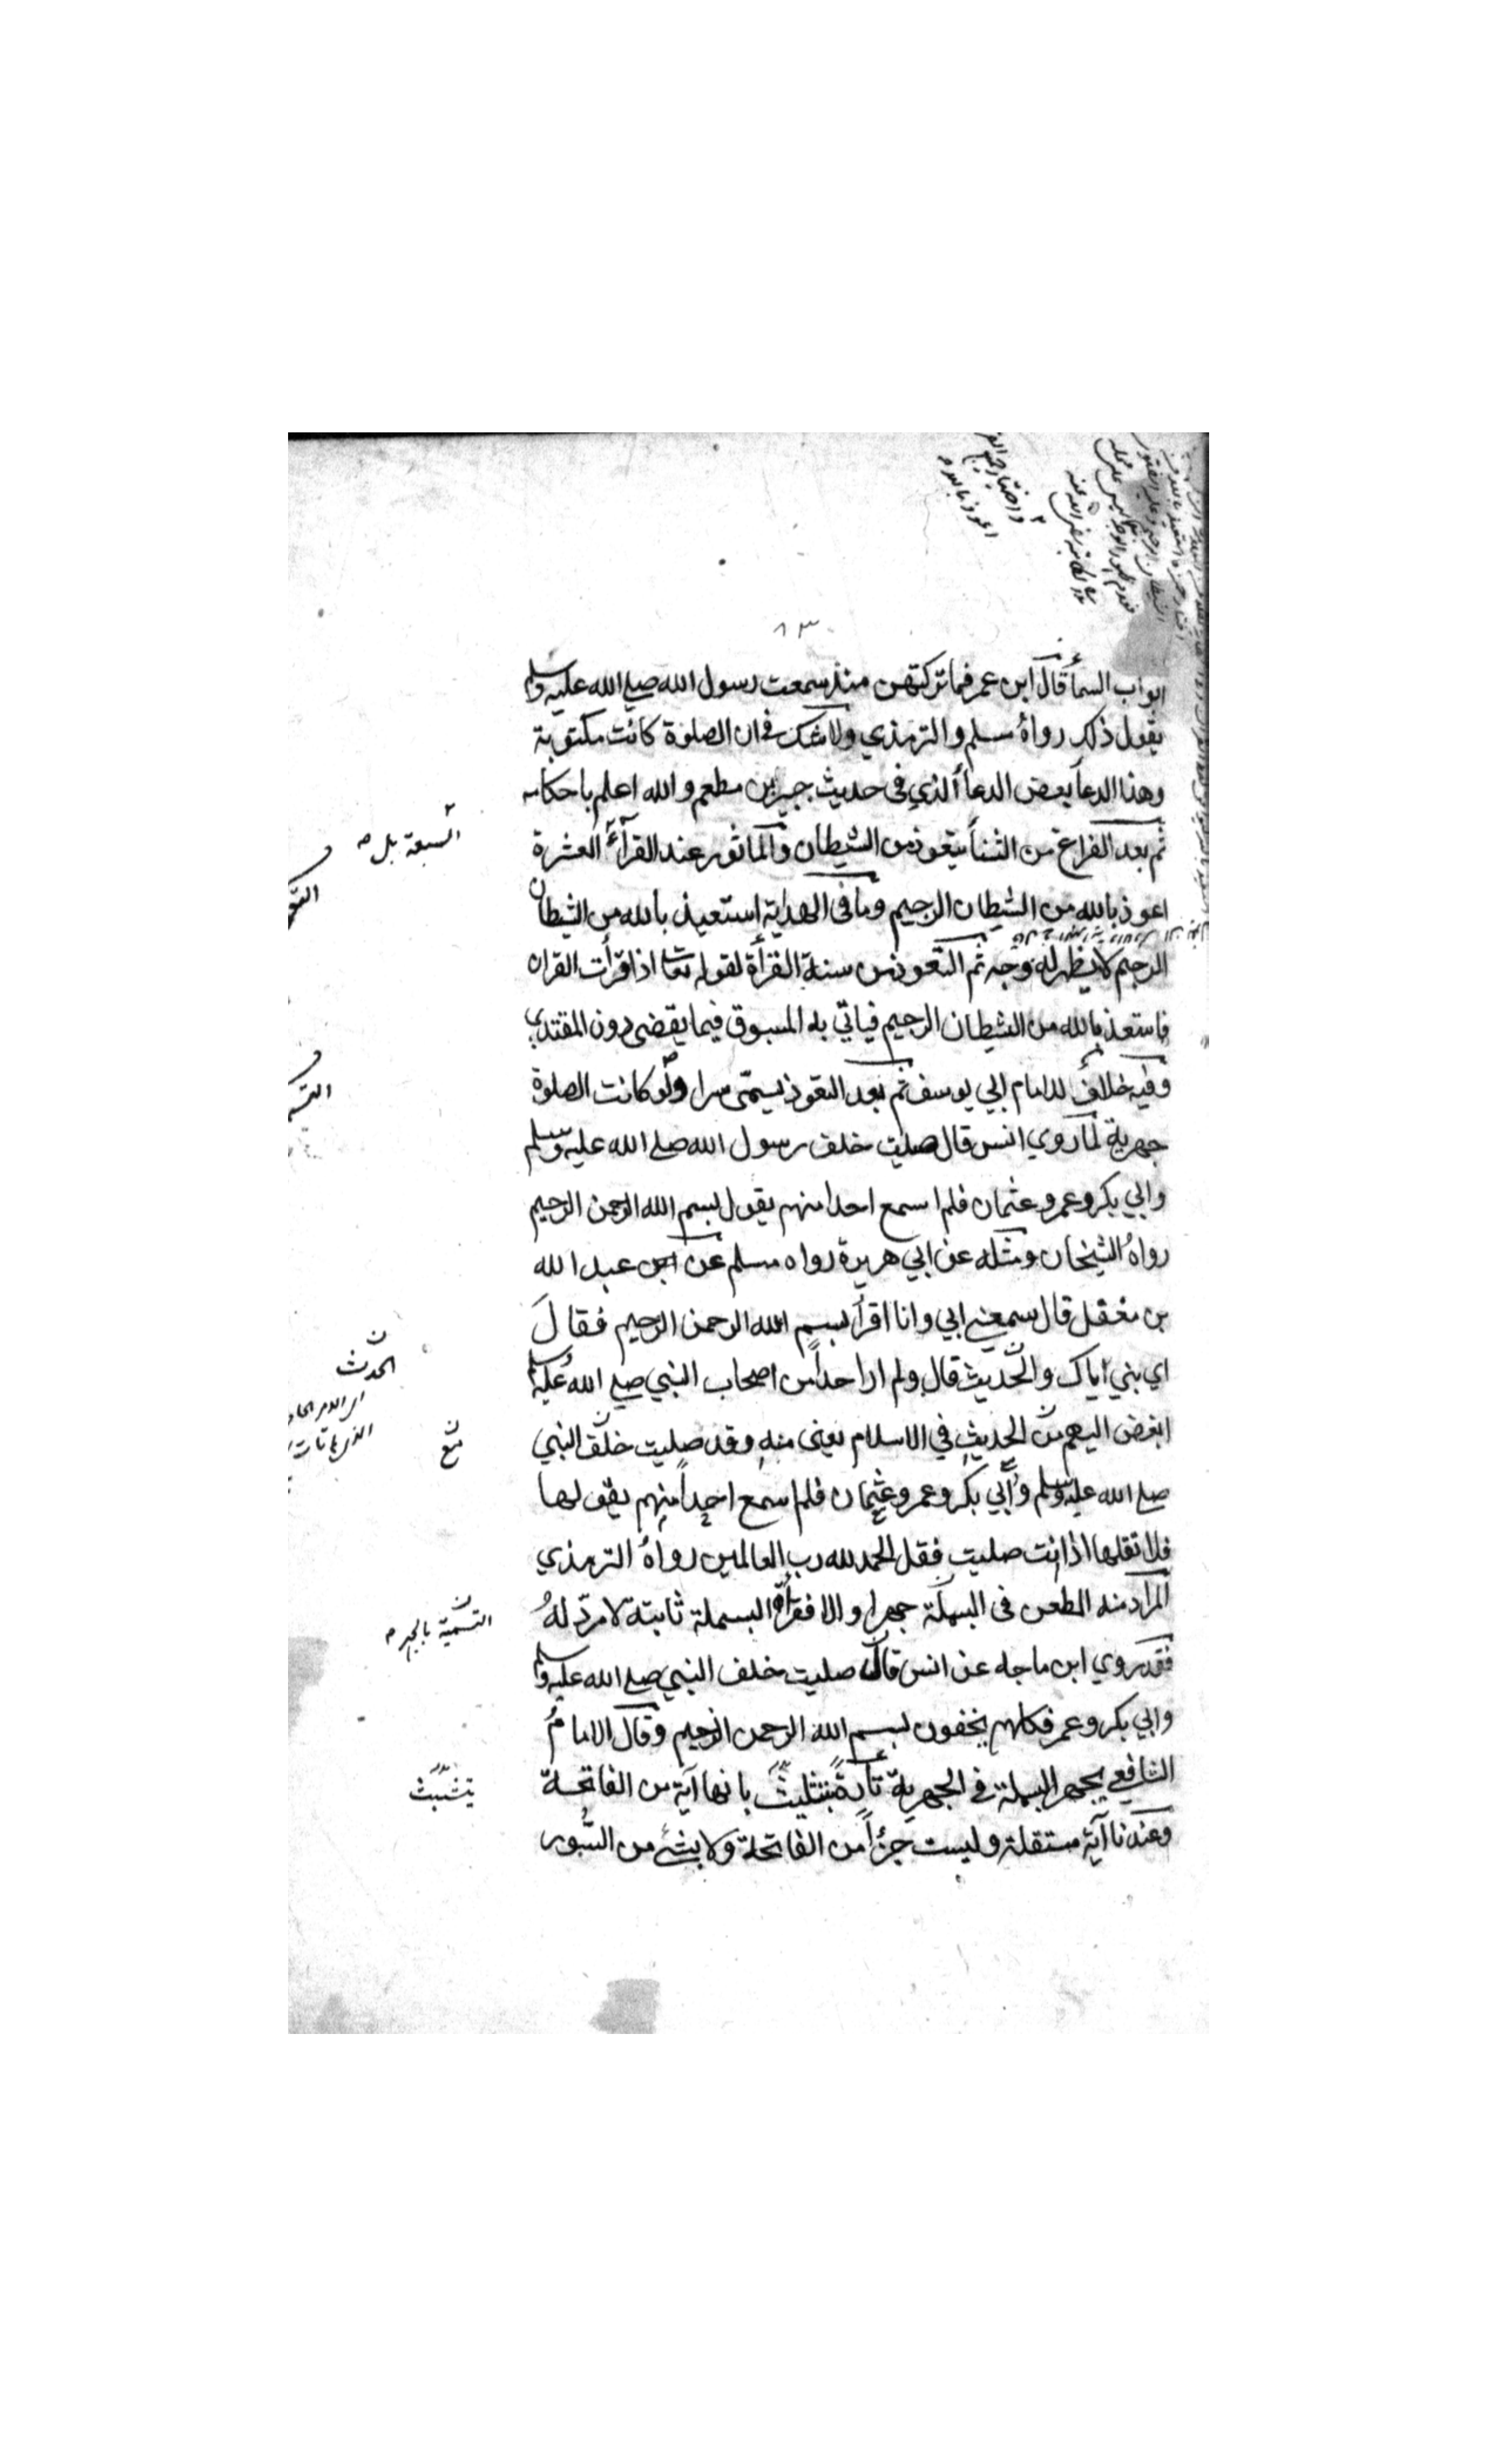 ٨٣
ابواب السمأ قال ابن عمر فما تركتهن منذ سمعت رسول الله صلى الله عليه وسلم
يقول ذلك رواه مسلم والترمذي ولا شك في ان الصلوة كانت مكتوبة
وهذا الدعأ بعض الدعأ الذي في حديث جبير بن مطعم والله اعلم باحكامه
ثم بعد الفراغ من الثنأ يتعوذ من الشيطان والماثور عند القرآء العشرة
اعوذ بالله من الشيطان الرجيم وما في الهداية استعيذ بالله من الشيطان
الرجيم لا يظهر له وجه ثم التعوذ من سنة القرأة لقوله تعا اذا قرأت القران
فاستعذ بالله من الشيطان الرجيم فياتي به المسبوق فيما يقضى دون المقتدي
وفيه خلاف للامام ابي يوسف ثم بعد التعوذ يسمّى سرا ولو كانت الصلوة
جهرية لما روي انس قال صليت خلف رسول الله صلى الله عليه وسلم
وابي بكر وعمر وعثمان فلم اسمع احدا منهم يقول بسم الله الرحمن الرحيم
رواه الشيخان ومثله عن ابي هريرة رواه مسلم عن ابن عبد الله
بن مغفل قال سمعني ابي وانا اقرأ بسم الله الرحمن الرحيم فقال
اي بني اياك والحديث قال ولم ار احدا من اصحاب النبي صلى الله عليه وسلم
ابغض اليهم من الحديث في الاسلام يعنى منه وقد صليت خلف النبي
صلى الله عليه وسلم وأبي بكر وعمر وعثمان فلم اسمع احداً منهم يقولها
فلا تقلها اذا انت صليت فقل الحمد لله رب العالمين رواه الترمذي
المراد منه الطعن في البسملة جهرا والا فقرأة البسملة ثابتة لا مردّ له
فقد روي ابن ماجه عن انس قال صليت خلف النبي صلى الله عليه وسلم
وابي بكر وعمر فكلهم يخفون بسم الله الرحمن الرحيم وقال الامام
الشافعي يجهر البسملة في الجهرية بانها آية من الفاتحة
وعندنا آية مستقلة وليست جزأً من الفاتحة ولا بشئ من السُّور
السبعة بل
الحدث
مع
التسمية بالجهر
يتشبث
اعوذ بالله